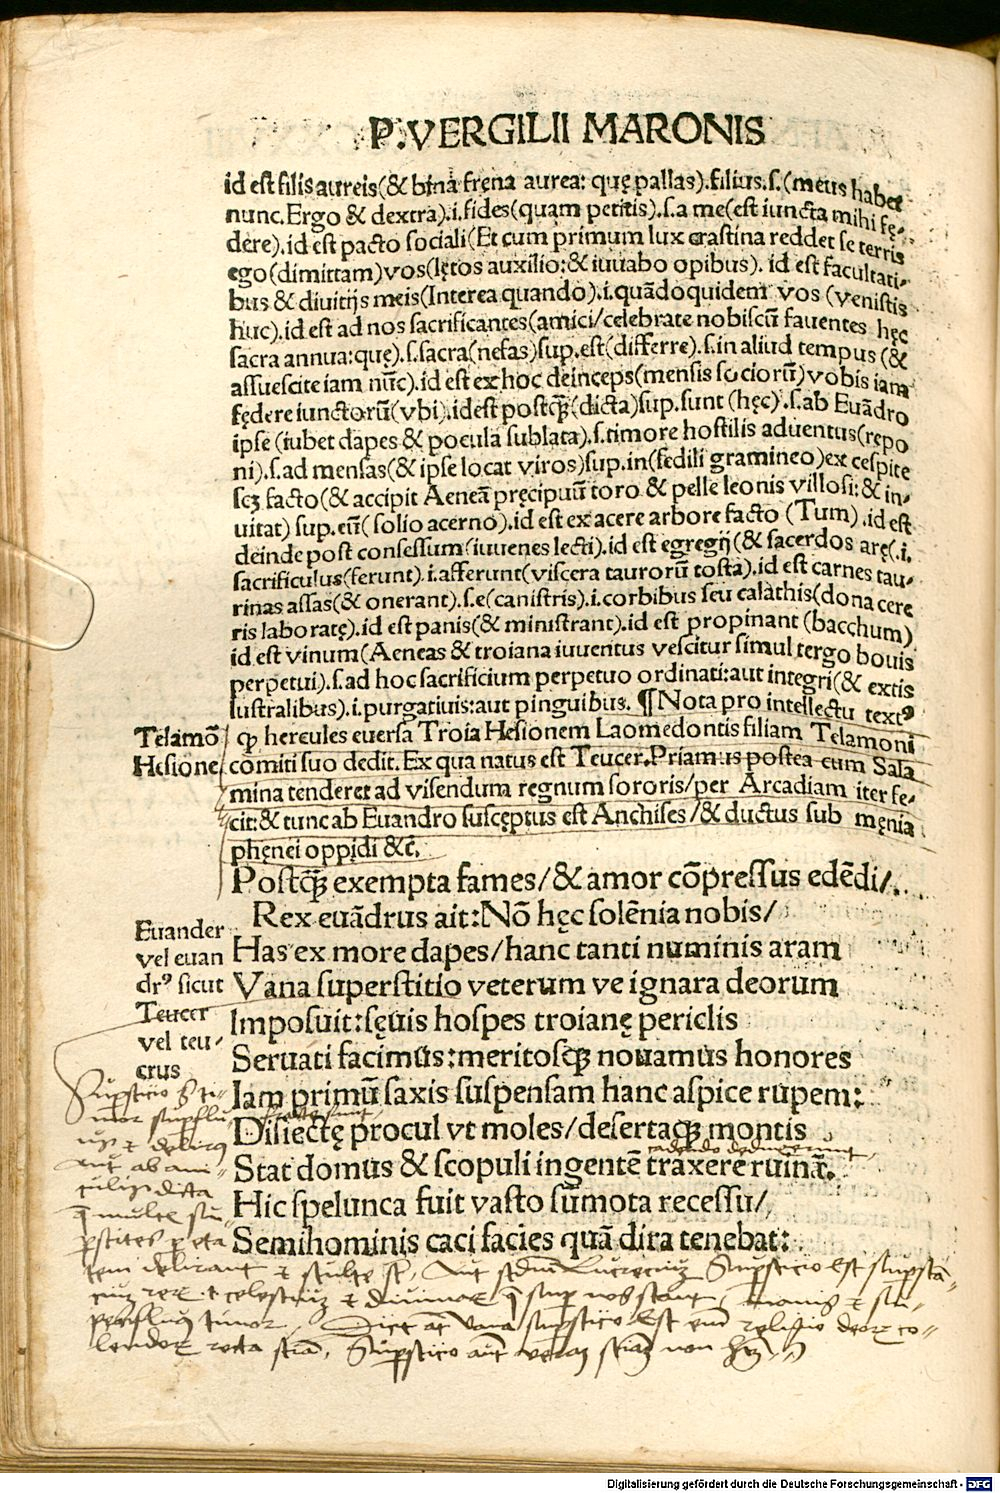 P. VERGILII MARONIS
id est filis aureis(& bina frena aurea: quę pallas).filius.s.(meus habet
nunc.Ergo & dextra).i.fides(quam petitis).s.a me(est iuncta mihi fę-
dere).id est pacto sociali(Et cum primum lux crastina reddet se terris
ego(dimittam)vos(lętos auxilio:& iuuabo opibus). id est facultati-
bus & diuitijs meis(Interea quando).i.quādoquidem vos (venistis
huc).id est ad nos sacrificantes(amici/celebrate nobiscū fauentes hęc
sacra annua:quę).s.sacra(nefas)sup.est(differre).s.in aliud tempus (&
assuescite iam nūc).id est ex hoc deinceps(mensis sociorū)vobis iam
fędere iunctorū(vbi).idest postꝙ̃(dicta)sup.sunt (hęc).s.ab Euādro
ipse (iubet dapes & pocula sublata).s.timore hostilis aduentus(repo
ni).s.ad mensas(& ipse locat viros)sup.in(sedili gramineo)ex cespite
scꝫ facto(& accipit Aeneā pręcipuū toro & pelle leonis villosi:& in-
uitat) sup.eū(solio acerno).id est ex acere arbore facto (Tum).id est
deinde post consessum(iuuenes lecti).id est egregij(& sacerdos arę(.i.
sacrificulus(ferunt).i.afferunt(viscera taurorū tosta).id est carnes tau-
rinas assas(& onerant).s.e(canistris).i.corbibus seu calathis(dona cere
ris laboratę).id est panis(& ministrant).id est propinant (bacchum)
id est vinum(Aeneas & troiana iuuentus vescitur simul tergo bouis
perpetui).s.ad hoc sacrificium perpetuo ordinati:aut integri(& extis
lustralibus).i.purgatiuis:aut pinguibus. ¶Nota pro intellectu textꝰ
Telamō
Hesione
ꝙ hercules euersa Troia Hesionem Laomedontis filiam Telamoni
comiti suo dedit.Ex qua natus est Teucer.Priamus postea cum Sala
mina tenderet ad visendum regnum sororis/per Arcadiam iter fe-
cit:& tunc ab Euandro suscęptus est Anchises/& ductus sub męnia
phęnei oppidi &c̄.
Postꝙ̃ exempta fames/& amor cōpressus edēdi/
Rex euādrus ait:Nō hęc solēnia nobis/
Has ex more dapes/hanc tanti numinis aram
Vana superstitio veterum ve ignara deorum
Imposuit:sęuis hospes troianę periclis
Seruati facimus:meritosꝙ̃ nouamus honores
Iam primū saxis suspensam hanc aspice rupem:
Disiectę procul vt moles/desertaꝙ̃ montis
Stat domus & scopuli ingentē traxere ruinā.
Hic spelunca fuit vasto sūmota recessu/
Semihominis caci facies quā dira tenebat:
Euander
vel euan
drꝰ sicut
Teucer
vel teu-
crus
Digitalisierung gefördert durch die Deutsche Forschungsgemeinschaft - DFG